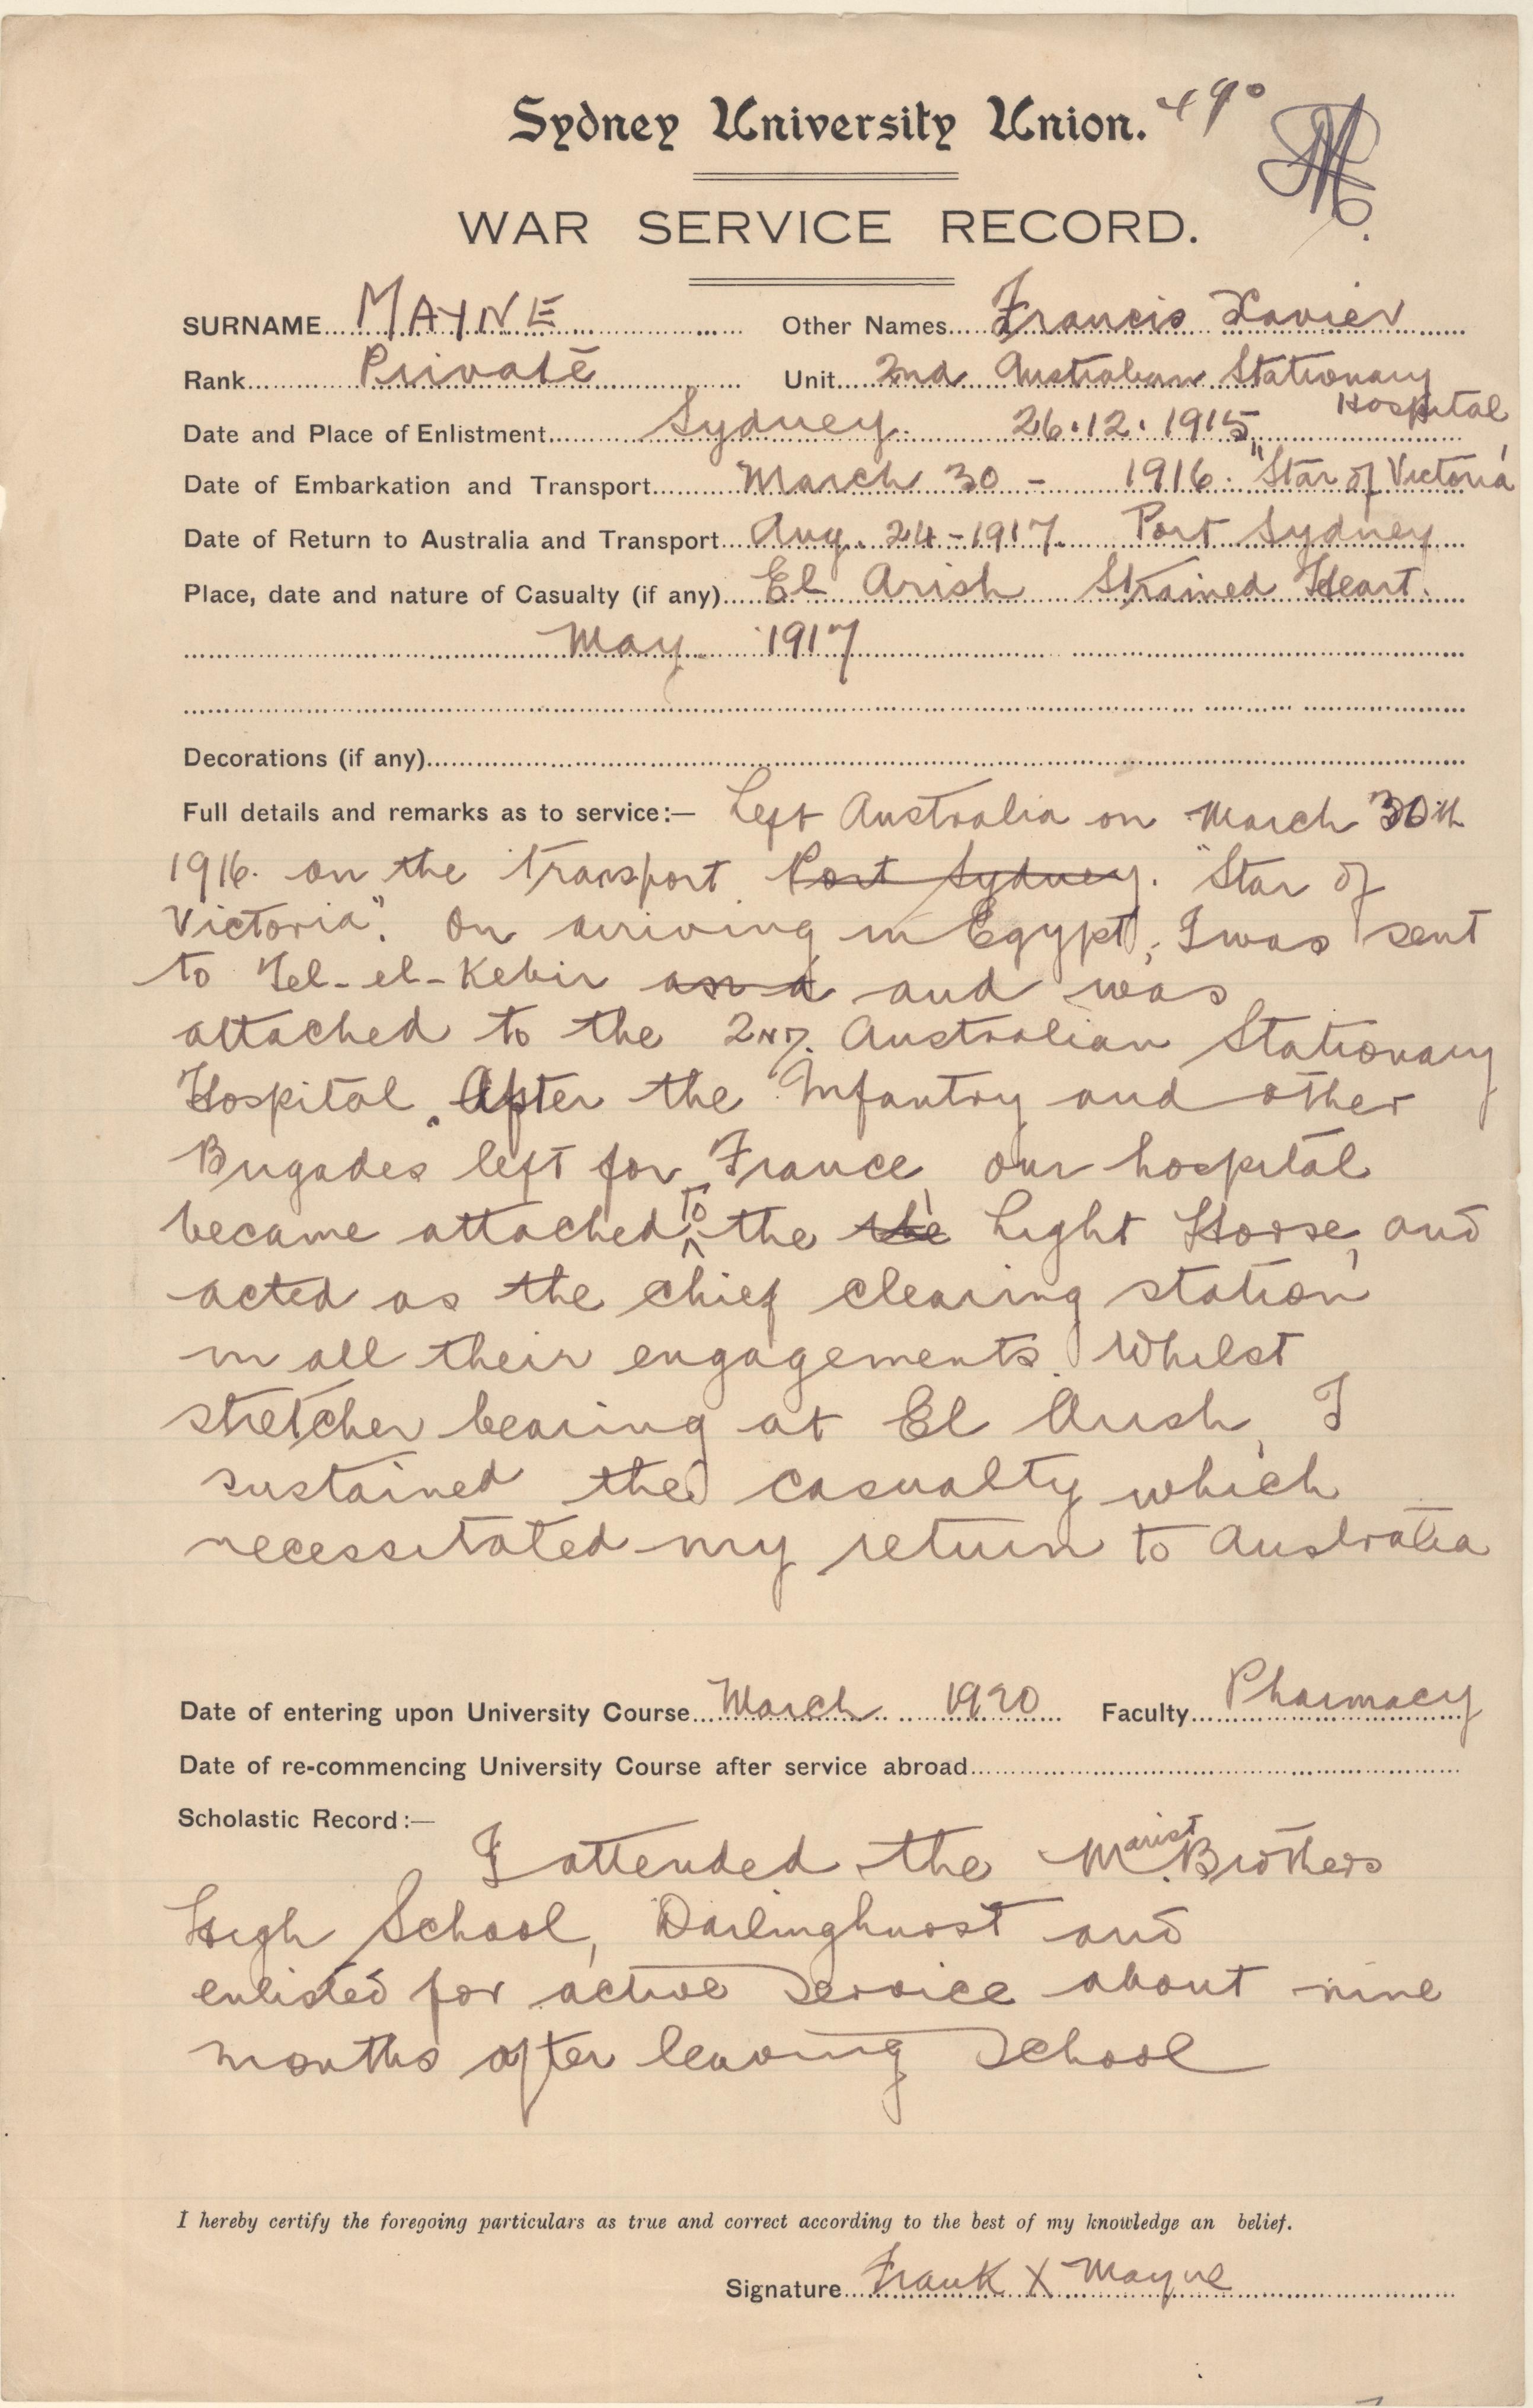 Sydney University Union. 490
WAR SERVICE RECORD.
SURNAME MAYNE Other Names Francis Xavier
Rank Private Unit 2nd Australian Stationary
Hospital
Date and Place of Enlistment Sydney. 26.12.1915
Date of Embarkation and Transport March 30 - 1916. "Star of Victoria"
Date of Return to Australia and Transport Aug. 24-1917. Port Sydney
Place, date and nature of Casualty (if any) El Arish Strained Heart.
May 1917
Decorations (if any)
Full details and remarks as to service:— Left Australia on March 30th
1916. on the transport Port Sydney. "Star of
Victoria". On arriving in Egypt, I was sent
to Tel-el-Kebir and and was
attached to the 2nd. Australian Stationary
Hospital. After the Infantry and other
Brigades left for France, our hospital
became attached to the the Light Horse, and
acted as the chief clearing station
in all their engagements. Whilst
stretcher bearing at El Arish, I
sustained the casualty which
necessitated my return to Australia
Date of entering upon University Course March 1920 Faculty Pharmacy
Date of re-commencing University Course after service abroad
Scholastic Record:—
I attended the Marist Brothers
High School, Darlinghurst and
enlisted for active service about nine
months after leaving school
I hereby certify the foregoing particulars as true and correct according to the best of my knowledge an belief.
Signature Frank X Mayne